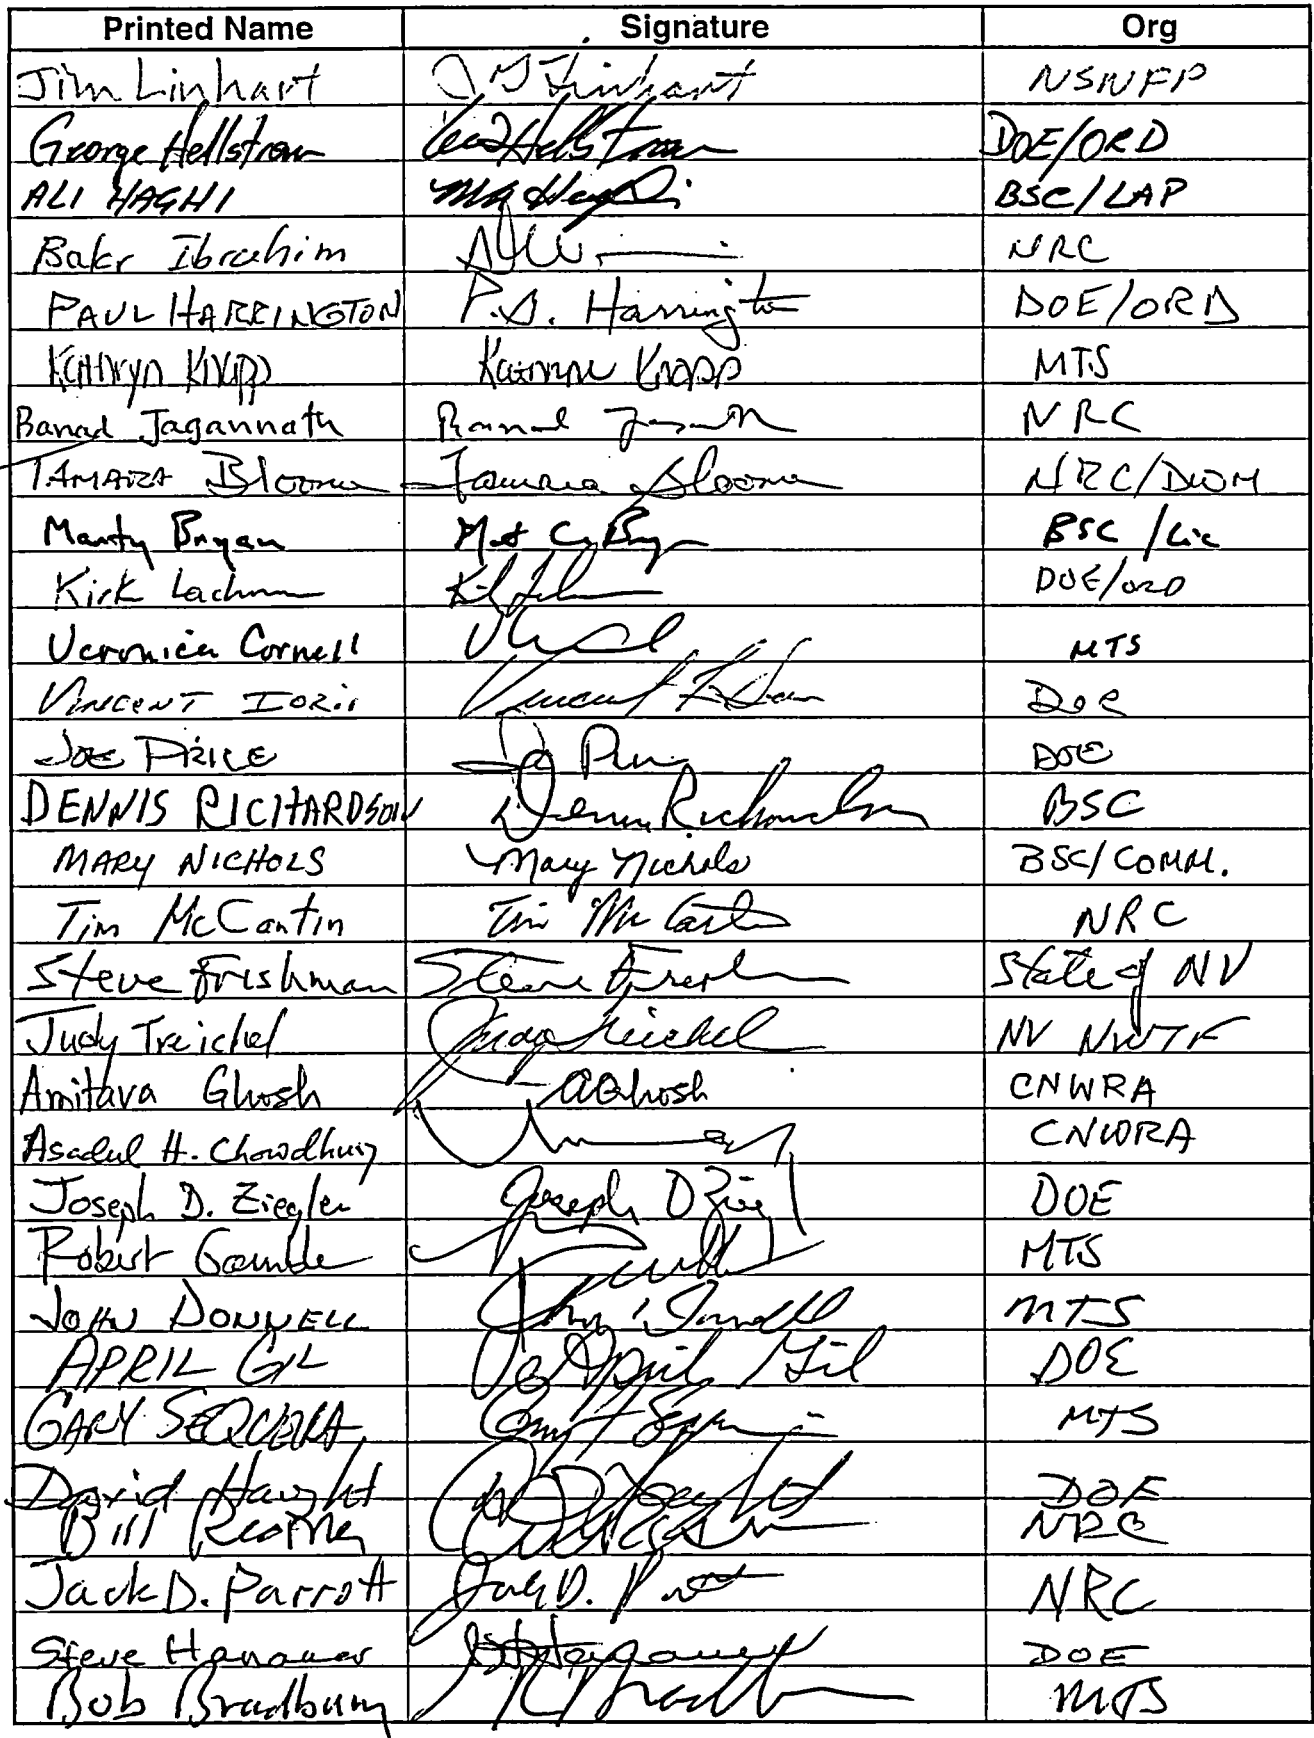 Printed Name Signature Org
Jim Linhart J G Linhart NSNFP
George Hellstrom Hellstrom DOE/ORD
ALI HAGHI BSC/LAP
Bakr Ibrahim NRC
PAUL HARRINGTON P.S. Harrington DOE/ORD
Kathryn Knapp Knapp MTS
Banad Jagannath NRC
TAMARA Bloomer Tamara Bloomer NRC/DWM
Marty Bryan BSC /Lic
Kirk Lachman DOE/ORD
Veronica Cornell MTS
VINCENT IORII Vincent DOE
JOE PRICE DOE
DENNIS RICHARDSON Dennis Richardson BSC
MARY NICHOLS Mary Nichols BSC/COMM.
Tim McCartin Tim McCartin NRC
Steve Frishman Steve Frishman State of NV
Judy Treichel Judy Treichel NV NWTF
Amitava Ghosh AGhosh CNWRA
Asadul H. Chowdhury CNWRA
Joseph D. Ziegler Joseph D Ziegler DOE
Robert Gamble MTS
JOHN DONNELL John Donnell MTS
APRIL GIL April Gil DOE
GARY SEQUEIRA MTS
David Haught DOE
Bill NRC
Jack D. Parrott Jack D. Parrott NRC
Steve Hanauer Hanauer DOE
Bob Bradbury Bradbury MTS